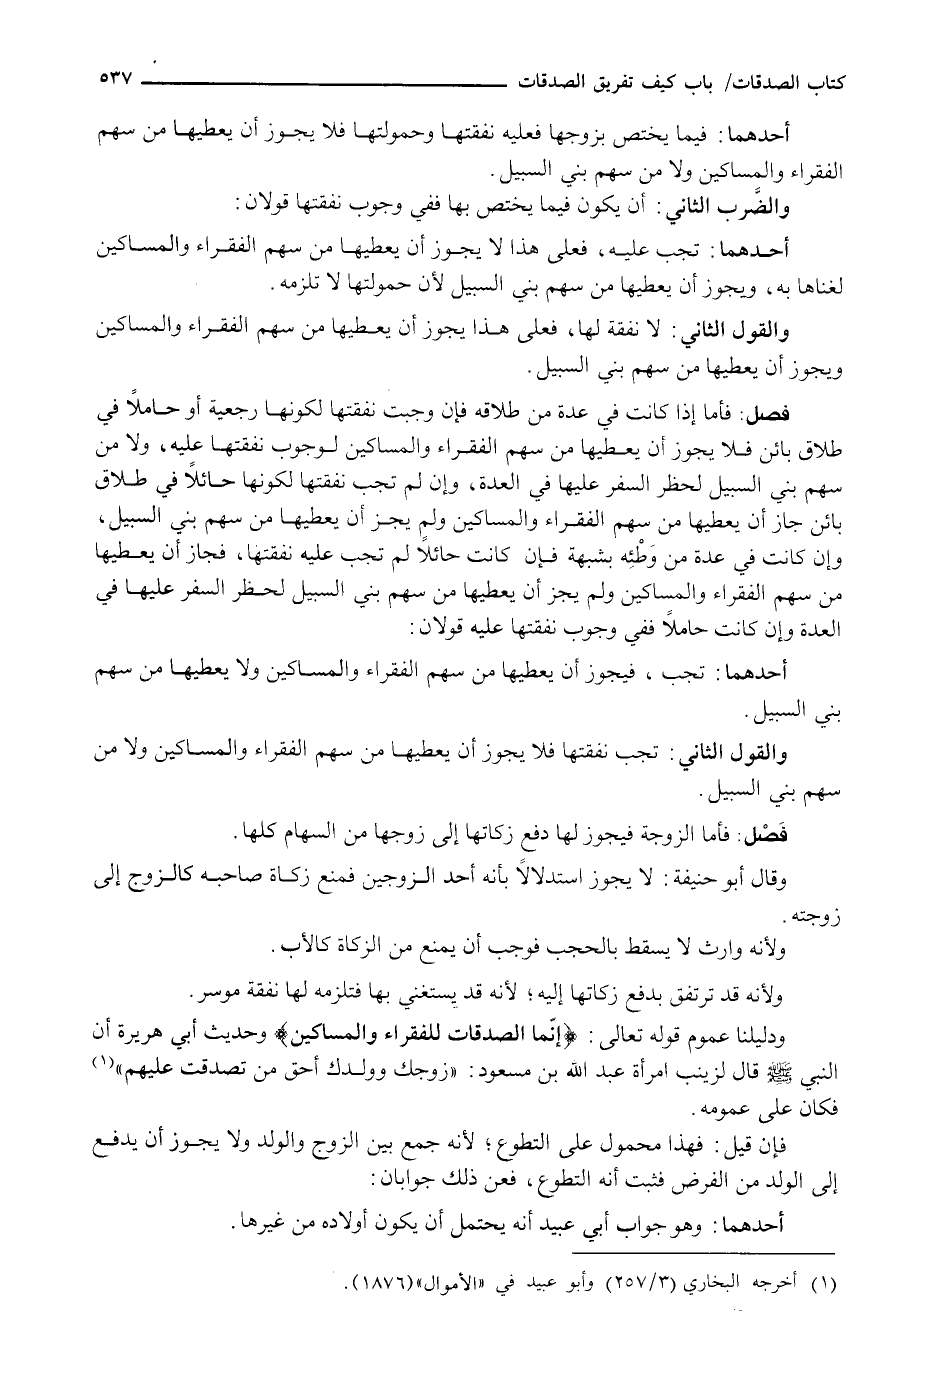 كتاب الصدقات/ باب كيف تفريق الصدقات ٥٣٧
أحدهما: فيما يختص بزوجها فعليه نفقتها وحمولتها فلا يجوز أن يعطيها من سهم
الفقراء والمساكين ولا من سهم بني السبيل.
والضَّرب الثاني: أن يكون فيما يختص بها ففي وجوب نفقتها قولان:
أحدهما: تجب عليه، فعلى هذا لا يجوز أن يعطيها من سهم الفقراء والمساكين
لغناها به، ويجوز أن يعطيها من سهم بني السبيل لأن حمولتها لا تلزمه.
والقول الثاني: لا نفقة لها، فعلى هذا يجوز أن يعطيها من سهم الفقراء والمساكين
ويجوز أن يعطيها من سهم بني السبيل.
فصل: فأما إذا كانت في عدة من طلاقه فإن وجبت نفقتها لكونها رجعية أو حاملاً في
طلاق بائن فلا يجوز أن يعطيها من سهم الفقراء والمساكين لوجوب نفقتها عليه، ولا من
سهم بني السبيل لحظر السفر عليها في العدة، وإن لم تجب نفقتها لكونها حائلاً في طلاق
بائن جاز أن يعطيها من سهم الفقراء والمساكين ولم يجز أن يعطيها من سهم بني السبيل،
وإن كانت في عدة من وَطْئِه بشبهة فإن كانت حائلاً لم تجب عليه نفقتها، فجاز أن يعطيها
من سهم الفقراء والمساكين ولم يجز أن يعطيها من سهم بني السبيل لحظر السفر عليها في
العدة وإن كانت حاملاً ففي وجوب نفقتها عليه قولان:
أحدهما: تجب ، فيجوز أن يعطيها من سهم الفقراء والمساكين ولا يعطيها من سهم
بني السبيل.
والقول الثاني: تجب نفقتها فلا يجوز أن يعطيها من سهم الفقراء والمساكين ولا من
سهم بني السبيل.
فَصْل: فأما الزوجة فيجوز لها دفع زكاتها إلى زوجها من السهام كلها.
وقال أبو حنيفة: لا يجوز استدلالاً بأنه أحد الزوجين فمنع زكاة صاحبه كالزوج إلى
زوجته.
ولأنه وارث لا يسقط بالحجب فوجب أن يمنع من الزكاة كالأب.
ولأنه قد ترتفق بدفع زكاتها إليه؛ لأنه قد يستغني بها فتلزمه لها نفقة موسر.
ودليلنا عموم قوله تعالى: ﴿إنّما الصدقات للفقراء والمساكين﴾ وحديث أبي هريرة أن
النبي ﷺ قال لزينب امرأة عبد الله بن مسعود: «زوجك وولدك أحق من تصدقت عليهم»(١)
فكان على عمومه.
فإن قيل: فهذا محمول على التطوع؛ لأنه جمع بين الزوج والولد ولا يجوز أن يدفع
إلى الولد من الفرض فثبت أنه التطوع، فعن ذلك جوابان:
أحدهما: وهو جواب أبي عبيد أنه يحتمل أن يكون أولاده من غيرها.
(١) أخرجه البخاري (٢٥٧/٣) وأبو عبيد في «الأموال»(١٨٧٦).